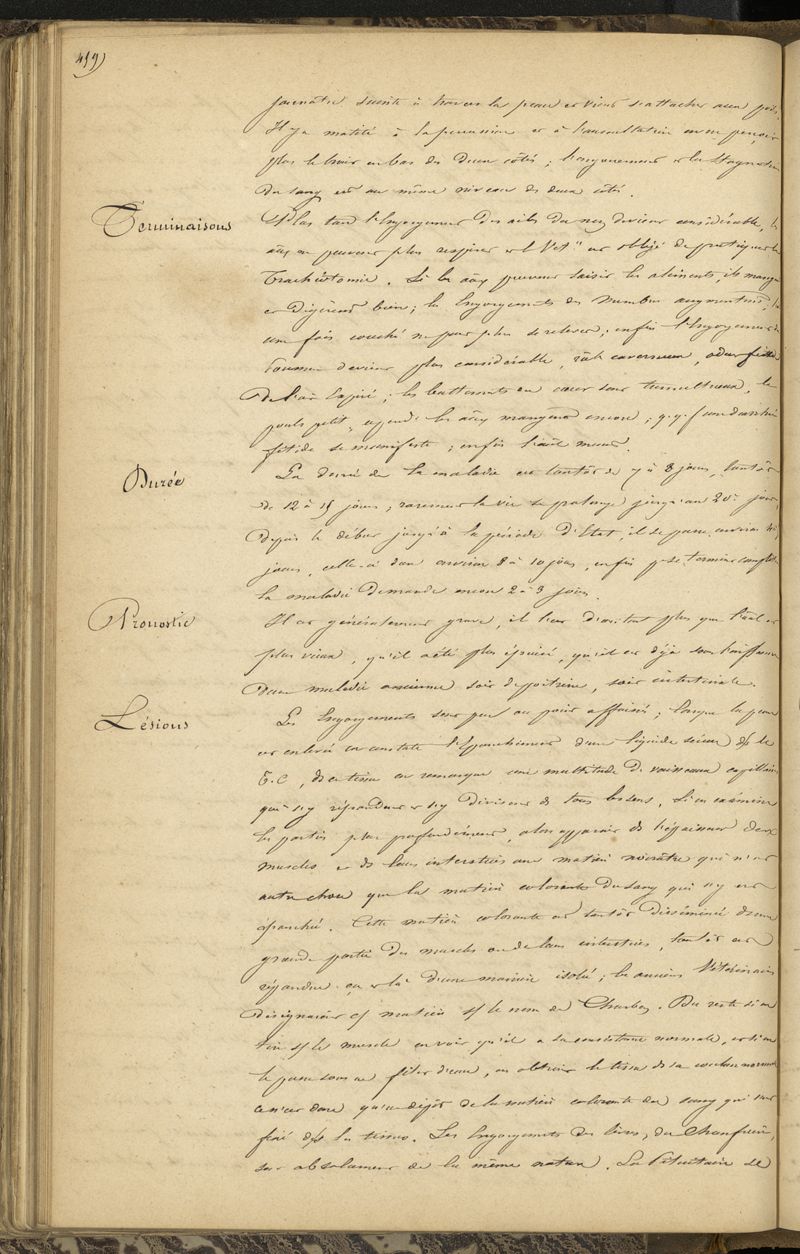 419)
jaunâtre suinte à travers la peau et vient s'attacher aux poils.
Il y a matité à la percussion et à l'auscultation on ne perçoit
plus le bruit en bas des deux côtés ; l'engouement et la stagnation
du sang est au même niveau des deux côtés.
Terminaisons
Plus tard l'Engorgement des ailes du nez devient considérable, les
aux ne peuvent plus respirer et l. Vet^re est obligé de pratiquer la
Trachéotomie. Si les aux peuvent saisir les aliments, ils mangent
et digèrent bien ; les Engorgements des membres augmentent,
une fois couché ne peut plus se relever ; enfin l'Engouement du
Poumon devient plus considérable, râle caverneux, odeur fétide
De l'air Expiré ; les battements du cœur sont tumultueux, le
pouls petit, cepend^t les aux mangent encore ; q.q.f une diarrhée
fétide se manifeste ; enfin l'aal meurt.
Durée
La durée de la maladie est tantôt de 7 à 8 jours, tantôt
de 12 à 15 jours ; rarement la vie se prolonge jusqu'au 20e jour,
Depuis le début jusqu'à la période d'Etat, il se passe environ
jours, celle-ci dure environ 8 à 10 jours, enfin p^r se terminer
la maladie demande encore 2 à 3 jours.
Pronostic
Il est généralement grave, il l'est d'autant plus que l'aal est
plus vieux, qu'il a été plus épuisé, qu'il est déjà sous l'influence
d'une maladie ancienne soit de poitrine, soit intestinale.
Lésions
Les Engorgements sont peu ou point affaissés ; lorsque la peau
est enlevée on constate l'épanchement d'un liquide séreux ds le
T.C, ds ce tissu on remarque une multitude de vaisseaux capillaires
qui s'y répandent et s'y divisent ds tous les sens. Si on examine
les parties plus profondément, alors apparait ds l'épaisseur des
muscles et ds leurs interstices une matière noirâtre qui n'est
autre chose que la matière colorante du sang qui s'y est
épanchée. Cette matière colorante est tantôt disséminée dans une
grande partie des muscles ou de leurs interstices, tantôt est
répandue çà et là d'une manière isolée ; les anciens Vétérinaires
Désignaient cs matières ss le nom de Charbon. Du reste si on
ss le muscle on voit qu'il a sa consistance normale, et si on
le passe sous un filet d'eau, on obtient le tissu de sa couleur normale
ce n'est donc qu'un dépôt de la matière colorante du sang qui s'est
fixé ds les tissus. Les Engorgements des lèvres, du Chanfrein,
sont absolument de la même nature. La Pituitaire se